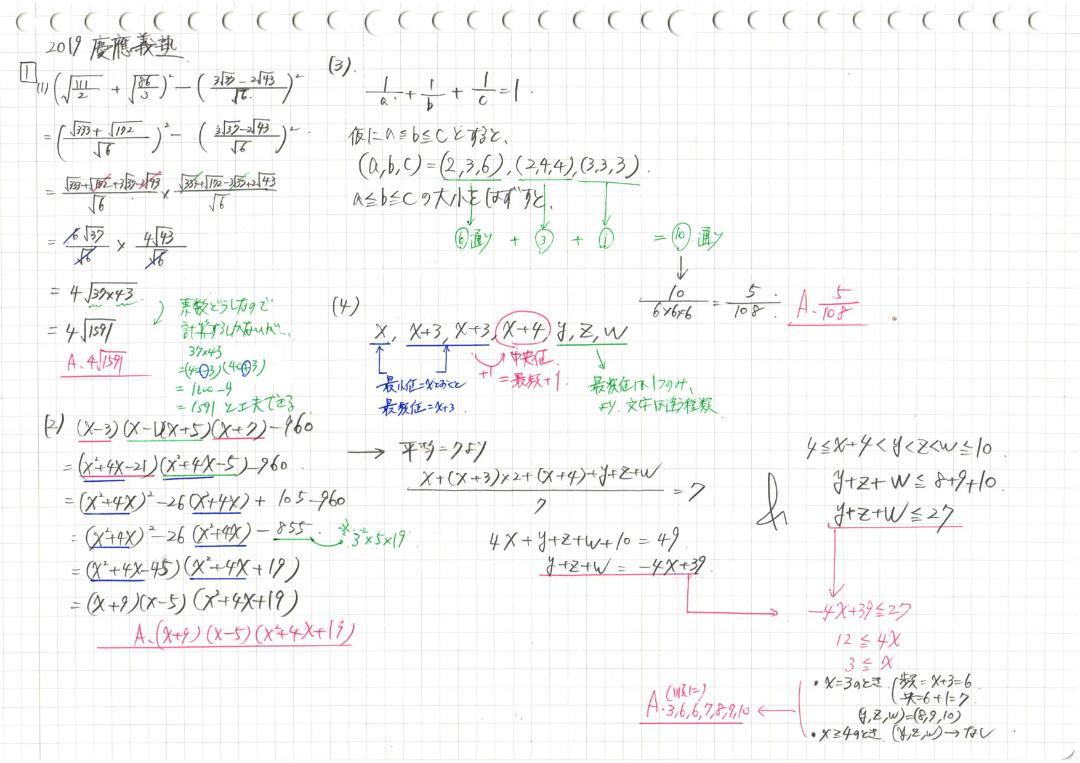 2019 慶應義塾
1
(1) (√(111/2) + √(86/3))² − ((3√37 − 2√43)/√6)²
= ((√333 + √172)/√6)² − ((3√37 − 2√43)/√6)²
= (√333 + √172 + 3√37 − 2√43)/√6 × (√333 + √172 − 3√37 + 2√43)/√6
= 6√37/√6 × 4√43/√6
= 4√37×43
= 4√1591
A. 4√1591
素数どうしなので
計算するしかないが…
37×43
=(40−3)(40+3)
= 1600−9
= 1591 と工夫できる
(2) (x−3)(x−1)(x+5)(x+7)−960
= (x²+4x−21)(x²+4x−5)−960
= (x²+4x)²−26(x²+4x)+105−960
= (x²+4x)²−26(x²+4x)−855
※3²×5×19
= (x²+4x−45)(x²+4x+19)
= (x+9)(x−5)(x²+4x+19)
A. (x+9)(x−5)(x²+4x+19)
(3).
1/a + 1/b + 1/c = 1
仮に a≦b≦c とすると、
(a,b,c)=(2,3,6),(2,4,4),(3,3,3).
a≦b≦c の大小をはずすと、
⑥通り + ③ + ① = ⑩通り
10/(6×6×6) = 5/108. A. 5/108
(4)
x, x+3, x+3, x+4, y, z, w
+1
中央値
=最頻+1.
最小値=xとおくと
最頻値=x+3.
最頻値は1つのみ、
より、文字は違う整数
→ 平均=7より
(x+(x+3)×2+(x+4)+y+z+w)/7 = 7
4x+y+z+w+10=49
y+z+w = −4x+39
&
4≦x+4<y<z<w≦10
y+z+w≦8+9+10.
y+z+w≦27
−4x+39≦27
12≦4x
3≦x
・x=3のとき 最頻=x+3=6
中央=6+1=7
(y,z,w)=(8,9,10)
・x≧4のとき (y,z,w)→なし
(順に)
A. 3,6,6,7,8,9,10 ←